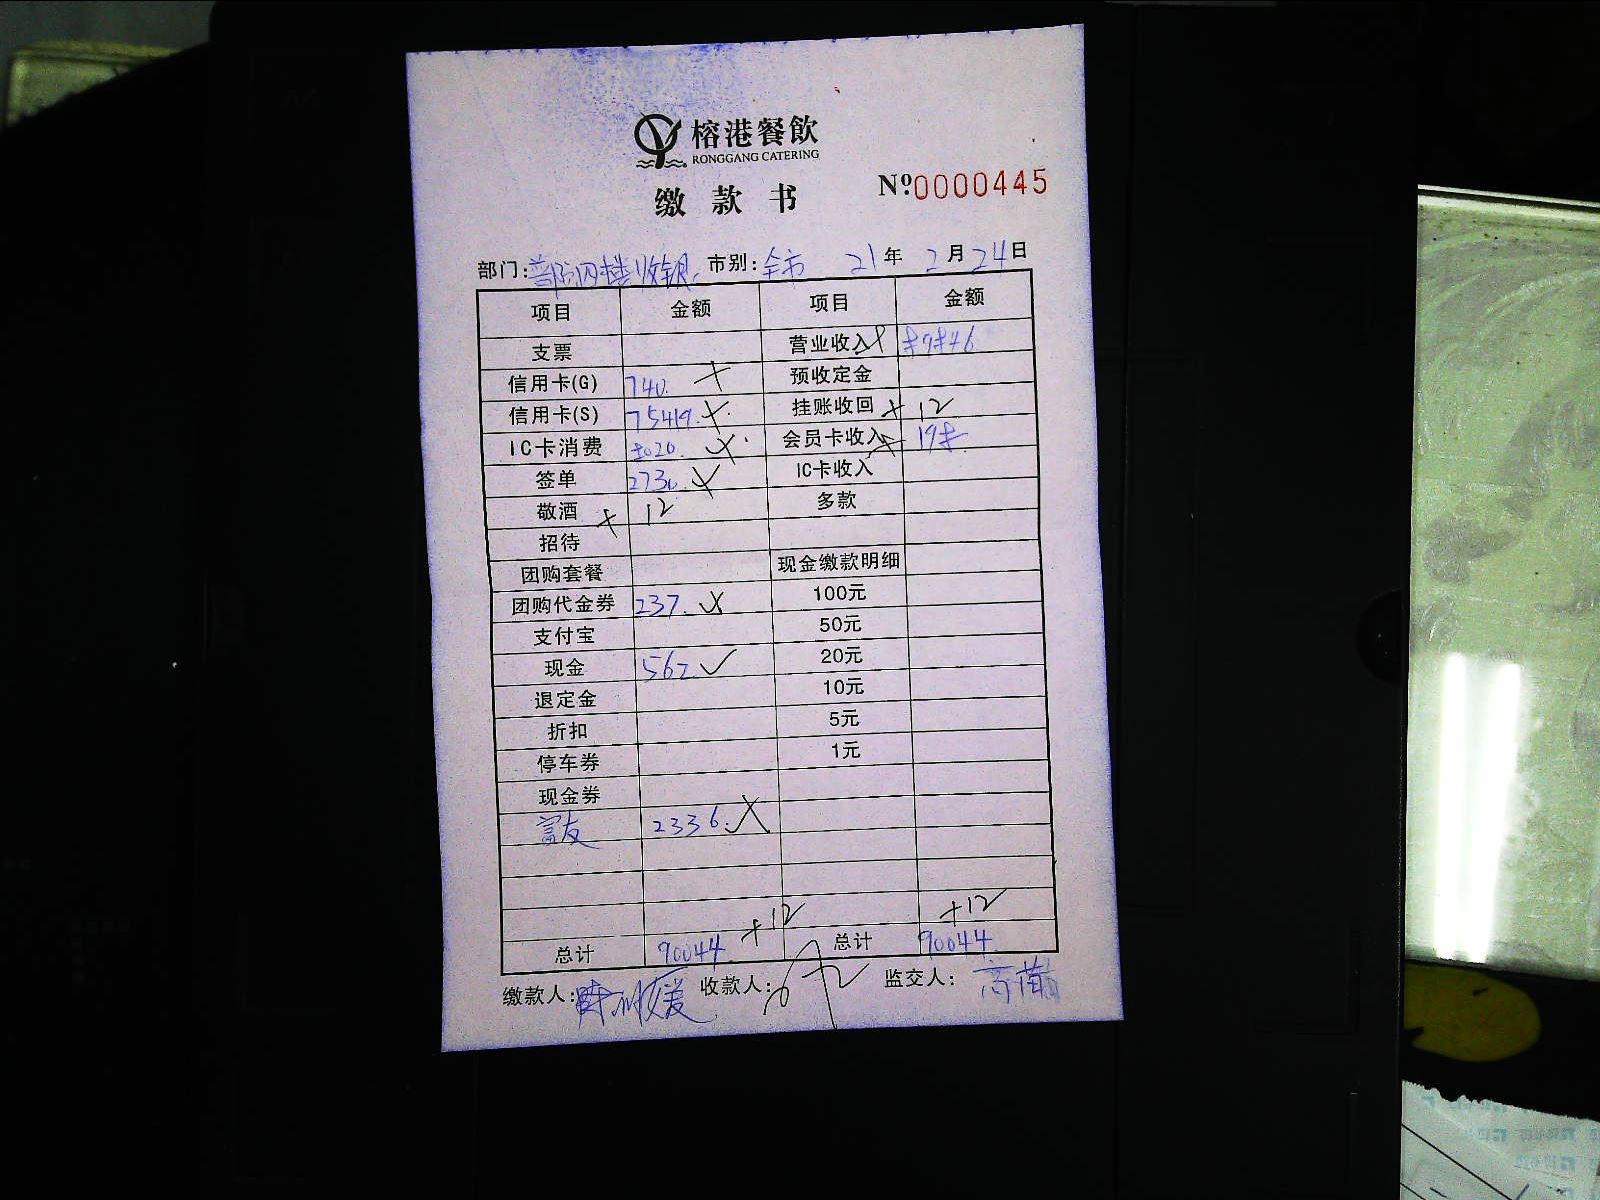 榕港餐飲
RONGGANG CATERING
缴款书 №0000445
部门: 市别:全市 21年2月24日
项目 金额 项目 金额
支票 营业收入
信用卡(G) 740. 预收定金
信用卡(S) 75419. 挂账收回 + 12
IC卡消费 会员卡收入
签单 2730. IC卡收入
敬酒 + 12 多款
招待
团购套餐 现金缴款明细
团购代金券 237. 100元
支付宝 50元
现金 562 20元
退定金 10元
折扣 5元
停车券 1元
现金券
富友 2336.
+12 +12
总计 90044. 总计 90044.
缴款人: 收款人: 监交人: